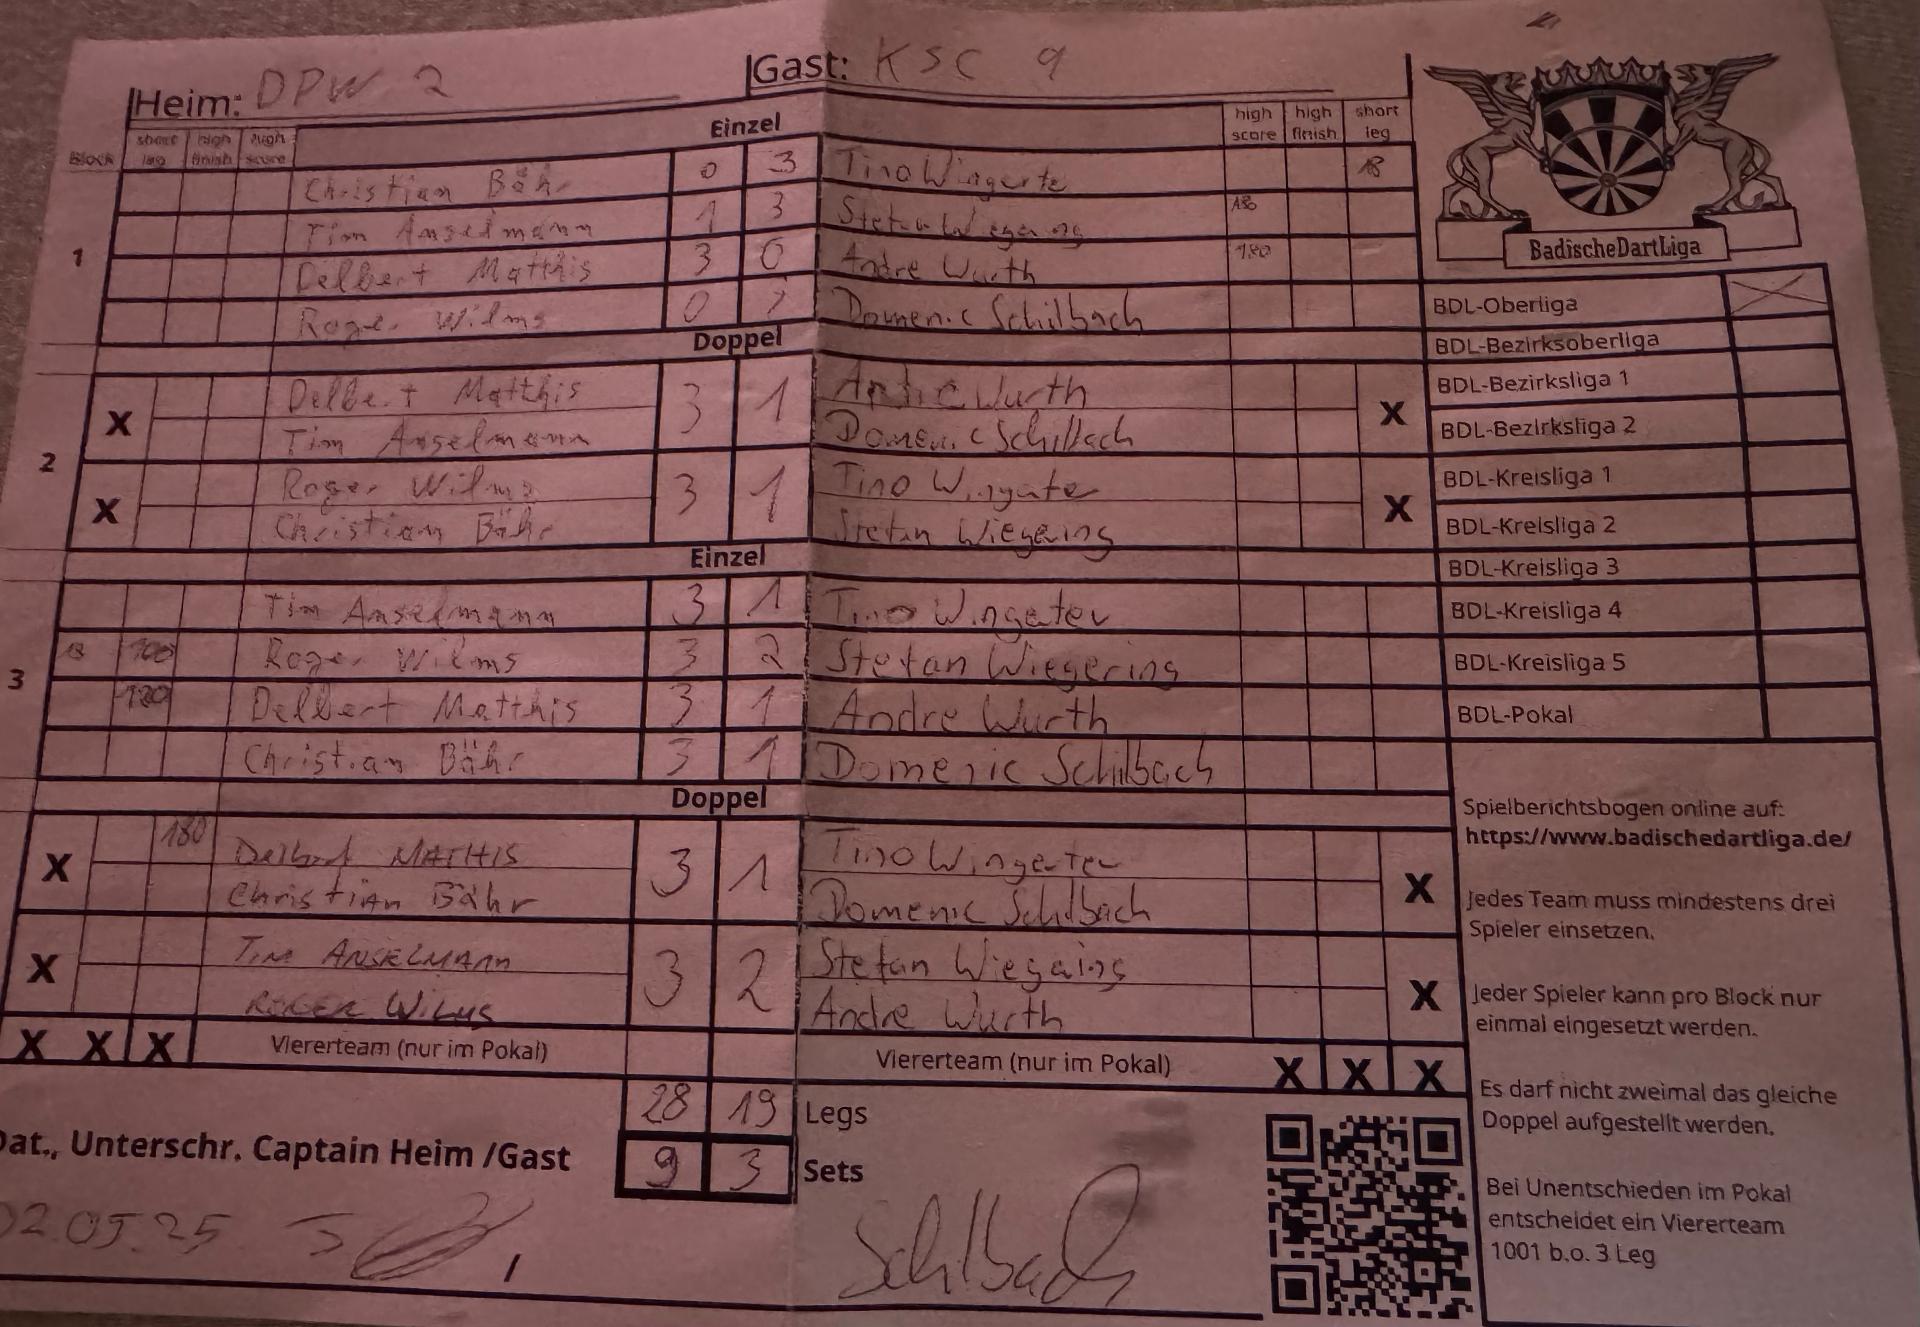 Heim: DPW 2 Gast: KSC 9
Block short leg high finish high score Einzel high score high finish short leg
1
Christian Bähr 0 3 Tino Wingerte 18
Tim Anselmann 1 3 Stefan Wiegering 180
Delbert Matthis 3 0 Andre Wurth 180
Roger Wilms 0 Domenic Schilbach
Doppel
2
X Delbert Matthis 3 1 Andre Wurth X
Tim Anselmann Domenic Schilbach
X Roger Wilms 3 1 Tino Wingater X
Christian Bähr Stefan Wiegering
Einzel
3
Tim Anselmann 3 1 Tino Wingerter
18 100 Roger Wilms 3 2 Stefan Wiegering
120 Delbert Matthis 3 1 Andre Wurth
Christian Bähr 3 1 Domenic Schilbach
Doppel
X 180 Delbert MATHIS 3 1 Tino Wingerter X
Christian Bähr Domenic Schilbach
X TIM ANSELMANN 3 2 Stefan Wiegering X
ROGER WILMS Andre Wurth
X X X Viererteam (nur im Pokal) Viererteam (nur im Pokal) X X X
28 19 Legs
9 3 Sets
Dat., Unterschr. Captain Heim /Gast
02.05.25 Schilbach
BadischeDartLiga
BDL-Oberliga X
BDL-Bezirksoberliga
BDL-Bezirksliga 1
BDL-Bezirksliga 2
BDL-Kreisliga 1
BDL-Kreisliga 2
BDL-Kreisliga 3
BDL-Kreisliga 4
BDL-Kreisliga 5
BDL-Pokal
Spielberichtsbogen online auf:
https://www.badischedartliga.de/
Jedes Team muss mindestens drei
Spieler einsetzen.
Jeder Spieler kann pro Block nur
einmal eingesetzt werden.
Es darf nicht zweimal das gleiche
Doppel aufgestellt werden.
Bei Unentschieden im Pokal
entscheidet ein Viererteam
1001 b.o. 3 Leg